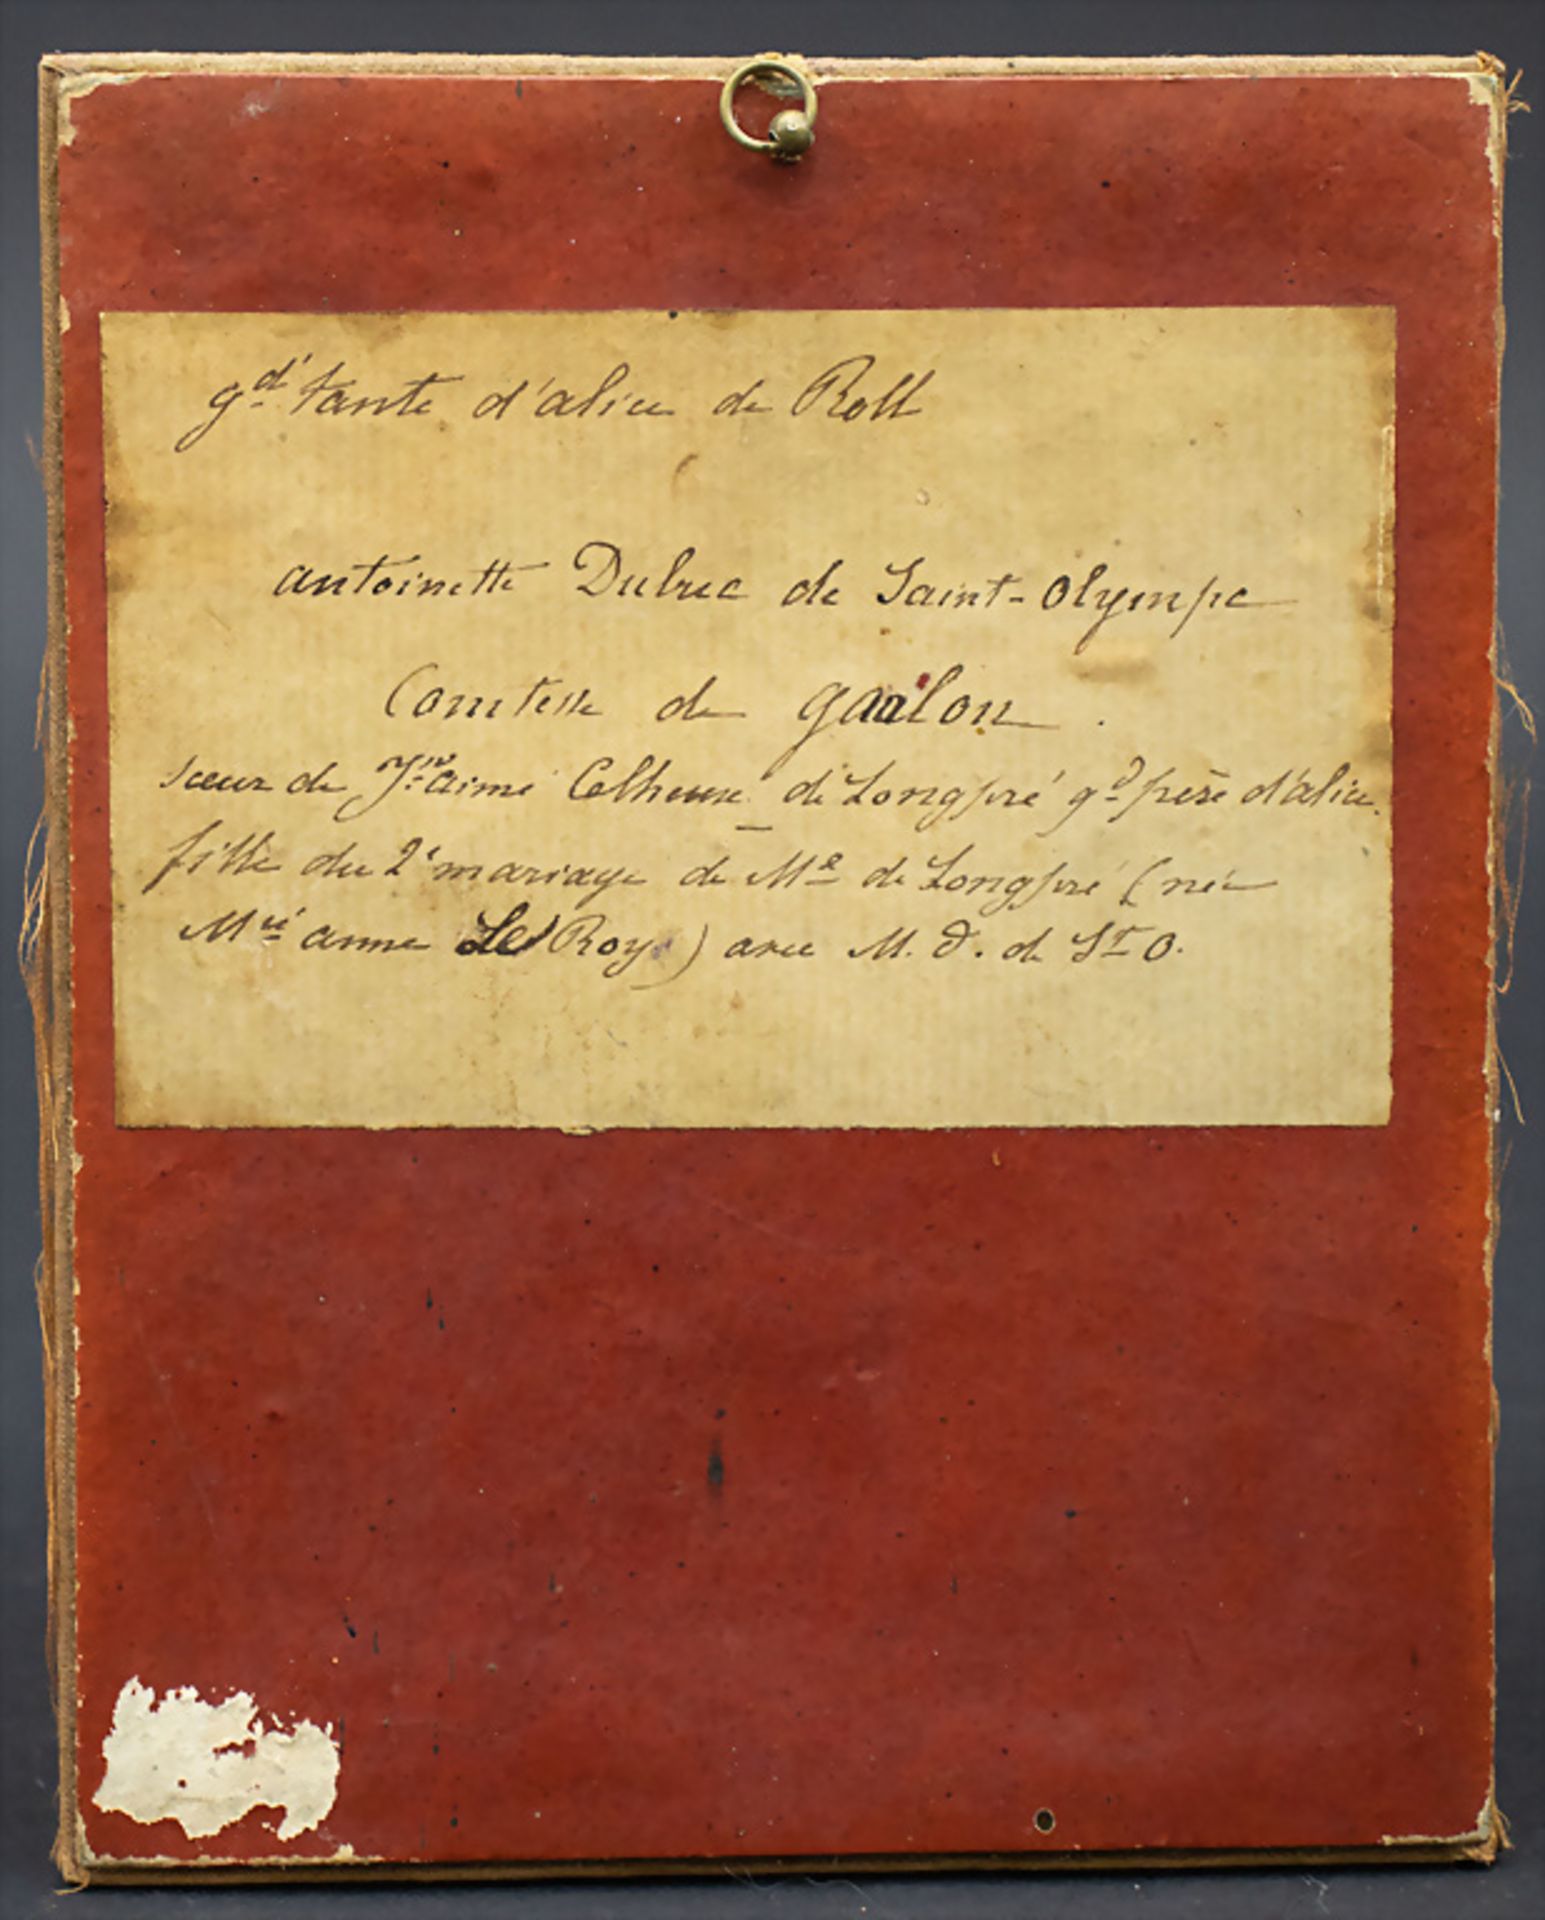 gd tante d'alice de Roll
antoinette Dubuc de Saint-Olympe
Comtesse de gaalon.
sœur de Jn aimé Celheuse de Longpré gd père d'alice.
fille du 2e mariage de Me de Longpré (née
Mie anne Le Roy) avec M. D. de St O.